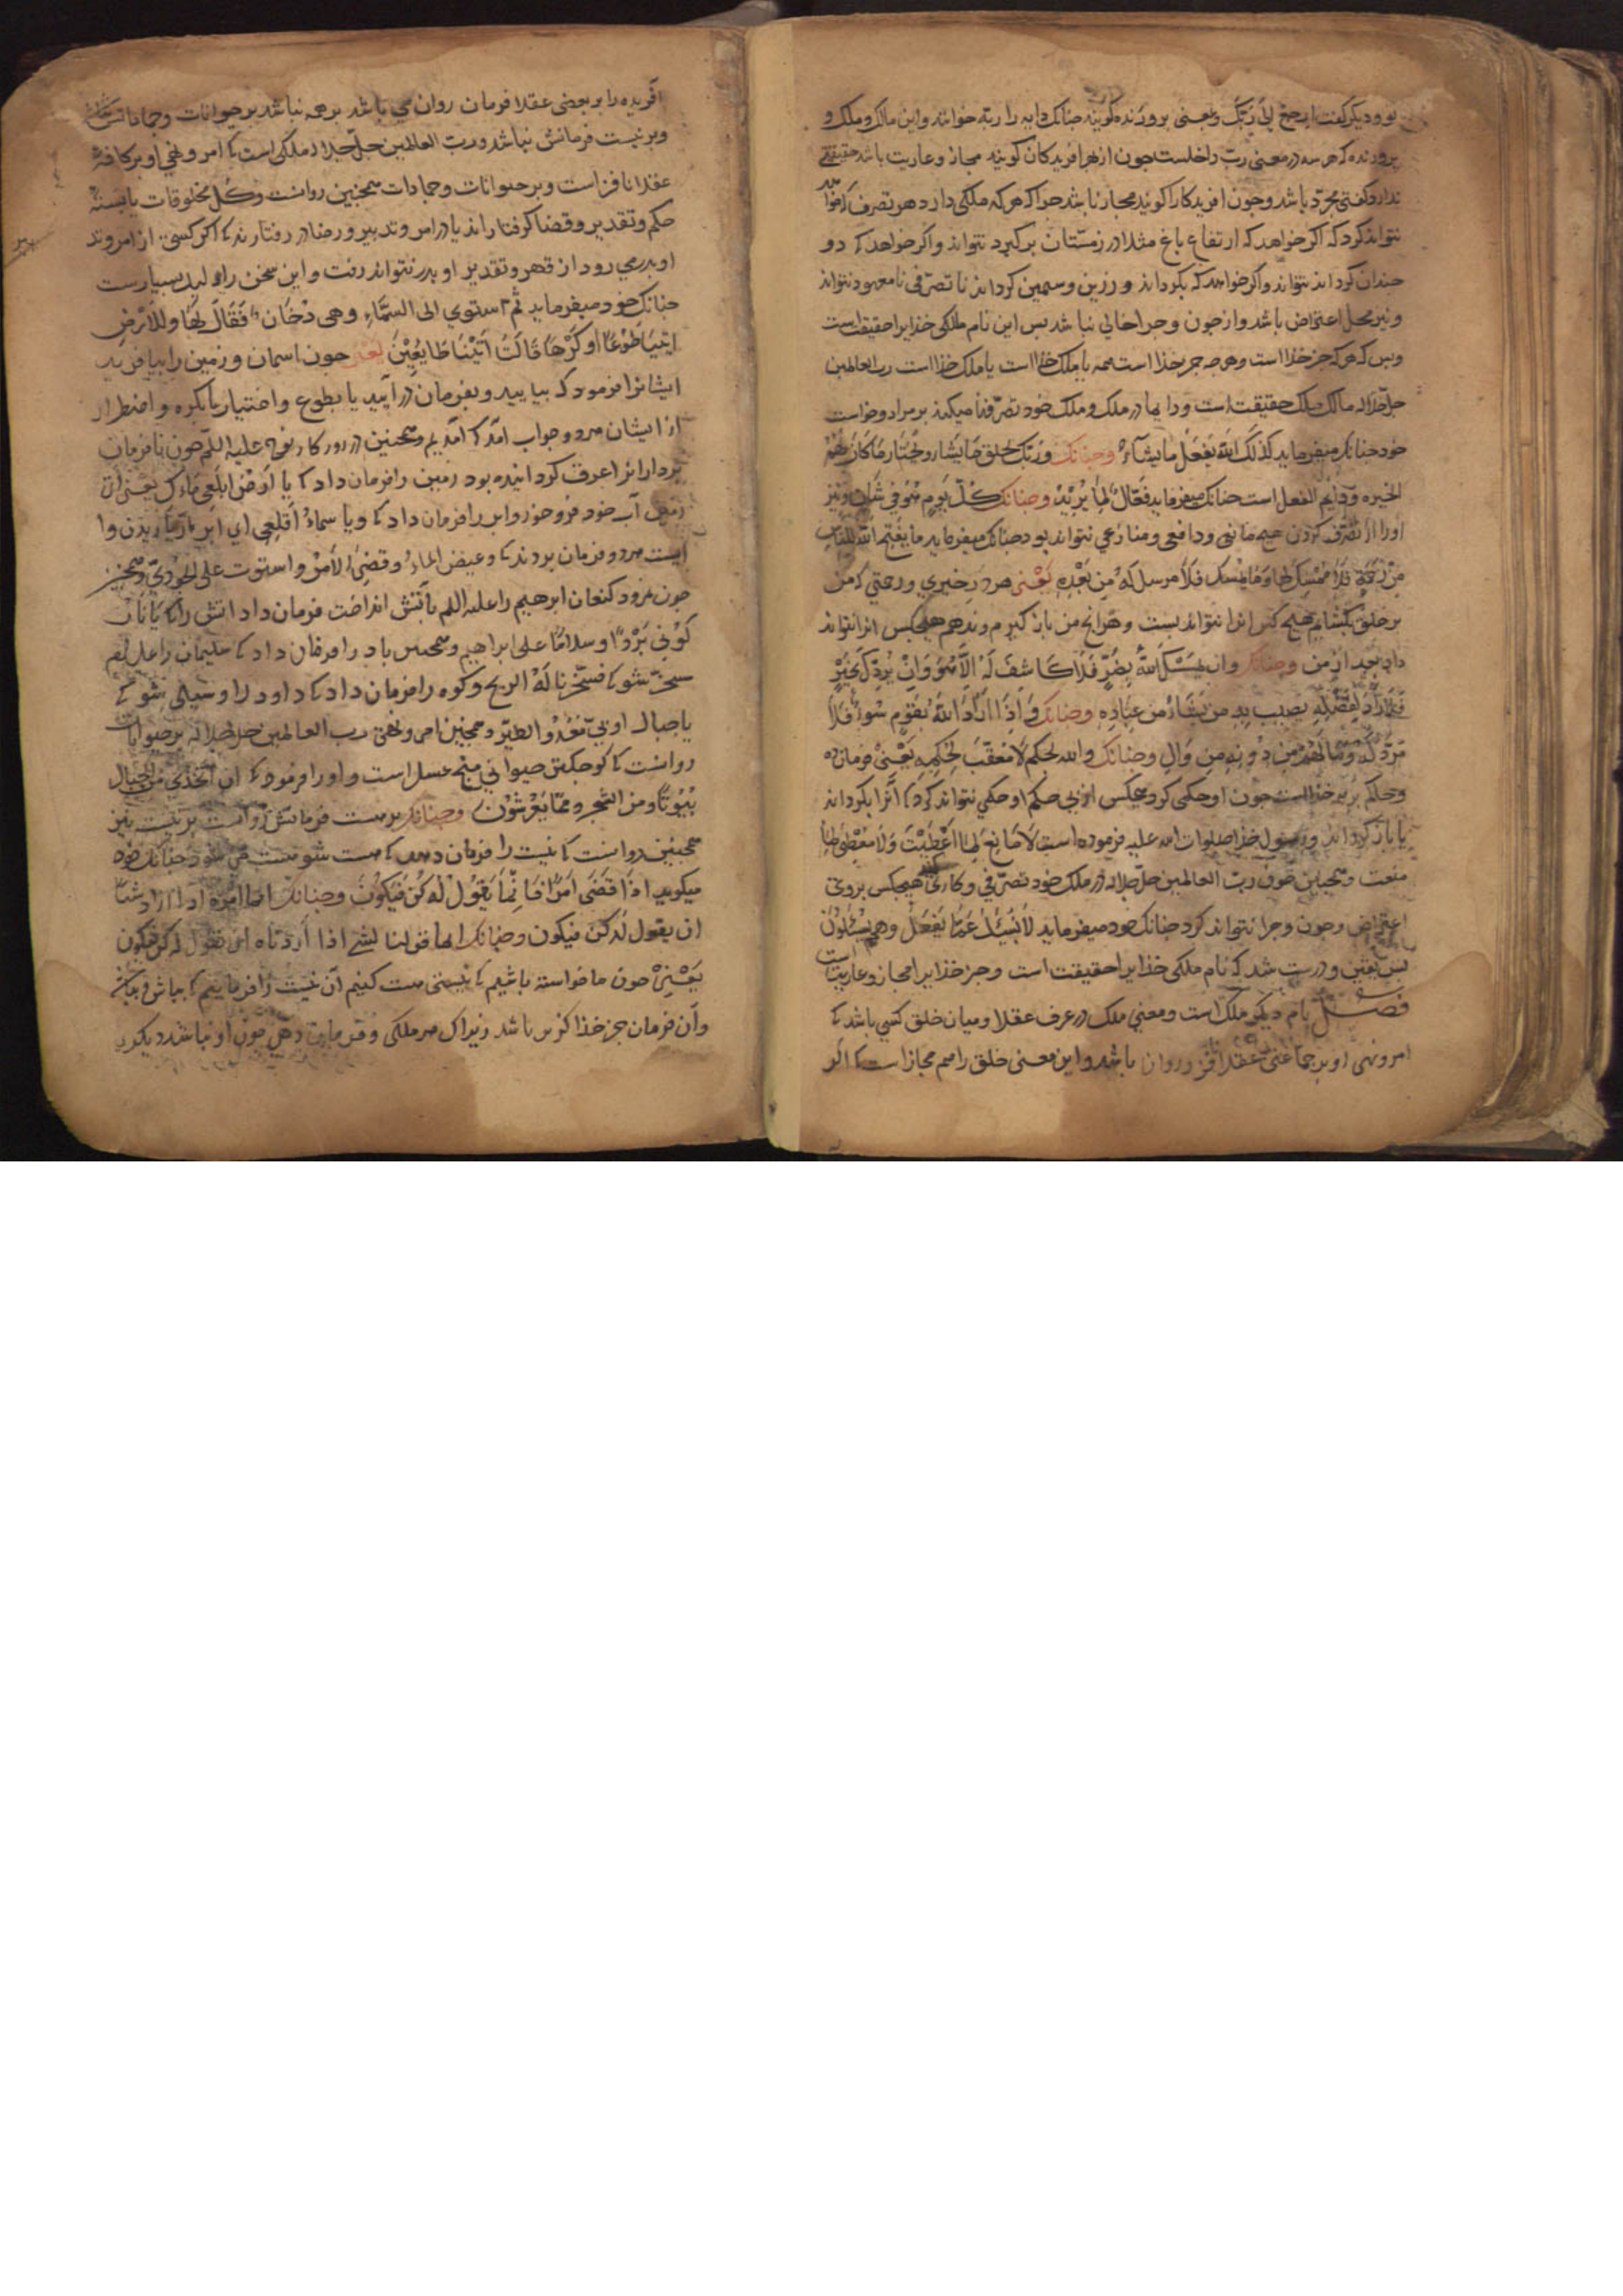 بود و دیکر کفت ارجعی الی ربک و بمعنی پرورنده کویند جنانک دایه را ربه خوانند و این مالک و ملک و
پرورنده که هر سه در معنی رب داخلست جون از بهر افریدکان کویند مجاز و عاریت باشد حقیقتی
ندارد کفتی مجرد باشد و جون افریدکار را کویند مجاز نباشد جرا که هر که ملکی دارد هر تصرف که خواهد
نتواند کرد که اکر خواهد که ارتفاع باغ مثلا در زمستان برکیرد نتواند و اکر خواهد که دو
جندان کرداند نتواند و اکر خواهد که بکرداند و زرین و سیمین کرداند تا تصرفی نامعهود نتواند
و نیز محل اعتراض باشد و از جون و جرا خالی نباشد بس این نام ملکی خدایرا حقیقت است
و بس که هر که جز خدا است و هرجه جز خدا است همه یا ملک خدا است یا ملک خدا است رب العالمین
جل جلاله مالک و ملک حقیقت است و دایما در ملک و ملک خود تصرفها میکند بر مراد و خواست
خود جنانک میفرماید کذلک الله یفعل ما یشاء وجنانک وربک یخلق ما یشاء ویختار ما کان لهم
الخیره و دایم الفعل است جنانک میفرماید فعال لما یرید وجنانک کل یوم هو فی شان و نیز
اورا از تصرف کردن هیج مانعی و دافعی و منازعی نتواند بود جنانک میفرماید ما یفتح الله للناس
من رحمة فلا ممسک لها وما یمسک فلا مرسل له من بعده یعنی هر در خیری و رحمتی که من
بر خلق بکشایم هیج کس انرا نتواند بست و هرانج من باز کیرم و ندهم هیجکس انرا نتواند
داد بعد از من وجنانک وان یمسسک الله بضر فلا کاشف له الا هو وان یردک بخیر
فلا راد لفضله یصیب به من یشاء من عباده وجنانک واذا اراد الله بقوم سوءا فلا
مرد له وما لهم من دونه من وال وجنانک والله یحکم لا معقب لحکمه یعنی فرمان ده
و حاکم برتر خدا است جون او حکمی کرد هیجکس از بی حکم او حکمی نتواند کرد تا انرا بکرداند
یا باز کرداند و رسول خدا صلوات الله علیه فرموده است لا مانع لما اعطیت ولا معطی لما
منعت و همجنین جون رب العالمین جل جلاله در ملک خود تصرفی و کاری کند هیجکس بروی
اعتراض و جون و جرا نتواند کرد جنانک خود میفرماید لا یسئل عما یفعل وهم یسئلون
بس یقین و درست شد که نام ملکی خدایرا حقیقت است و جز خدایرا مجاز و عاریت است
فصل نام دیکر ملک است و معنی ملک در عرف عقلا و میان خلق کسی باشد که
امر و نهی او بر جماعتی عقلا نافذ و روان باشد و این معنی خلق را هم مجاز است که اکر
آفریده را بر بعضی عقلا فرمان روان می باشد بر همه نباشد بر حیوانات و جمادات نباشد
و بر نیست فرمانش نباشد و رب العالمین جل جلاله ملکی است که امر و نهی او بر کافه
عقلا نافذ است و بر حیوانات و جمادات همجنین روانست و کل مخلوقات یا بسته
حکم و تقدیر و قضا کرفتارند یا در امر و تدبیر و رضا در رفتارند که اکر کسی از امر وند
او بدر می رود از قهر و تقدیر او بدر نتواند رفت و این سخن را دلیل بسیارست
جنانک خود میفرماید ثم استوی الی السماء وهی دخان فقال لها وللارض
ائتیا طوعا او کرها قالتا اتینا طایعین یعنی جون اسمان و زمین را بیافرید
ایشانرا فرمود که بیایید و بفرمان درآیید یا بطوع و اختیار یا بکره و اضطرار
از ایشان هردو جواب آمد که آمدیم و همجنین در روزکار نوح علیه السلم جون نافرمان
بردارانرا غرق کردانیده بود زمین را فرمان داد که یا ارض ابلعی ماءک یعنی ای
زمین آب خود فرو خور و ابر را فرمان داد که ویا سماء اقلعی ای ابر باز ما ریدن وا
ایست هردو فرمان بردند که وغیض الماء وقضی الامر واستوت علی الجودی و همجنین
جون نمرود کنعان ابرهیم را علیه السلم بآتش انداخت فرمان داد اتش را که یا نار
کونی بردا وسلاما علی ابراهیم و همجنین باد را فرمان داد که سلیمان را علیه السلم
مسخر شو که فسخرنا له الریح و کوه را فرمان داد که داود را و سیلی شو که
یا جبال اوبی معه والطیر و همجنین امر و نهی رب العالمین جل جلاله بر حیوانات
روانست که کوجکترین حیوانی منج عسل است و اورا فرمود که ان اتخذی من الجبال
بیوتا ومن الشجر ومما یعرشون وجنانک بر هست فرمانش روانست بر نیست نیز
همجنین روانست که نیست را فرمان دهد که هست شو هست می شود جنانک خود
میکوید اذا قضی امرا فانما یقول له کن فیکون وجنانک انما امره اذا اراد شیئا
ان یقول له کن فیکون وجنانک انما قولنا لشیء اذا اردناه ان نقول له کن فیکون
یعنی جون ما خواسته باشیم که نیستی هست کنیم آن نیست را فرماییم که باش بباشد
و آن فرمان جز خدا کس را نباشد زیراک هر ملکی و فرمان دهی جون او نباشد دیکری